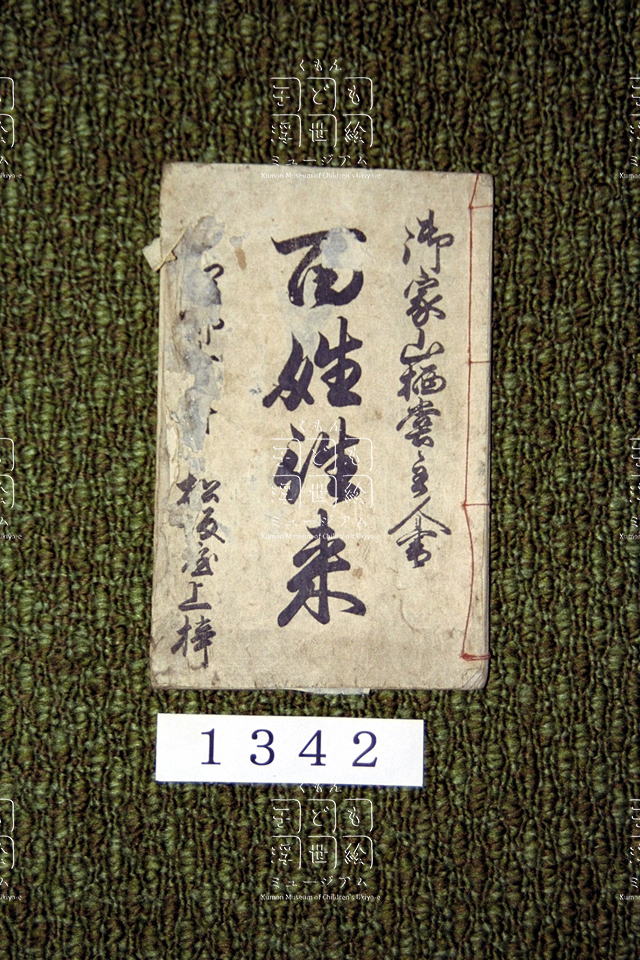 御家山栖堂主人書
百姓往来
松坂屋上梓
1342
くもん
子ども
浮世絵
ミュージアム
Kumon Museum of Children's Ukiyo-e